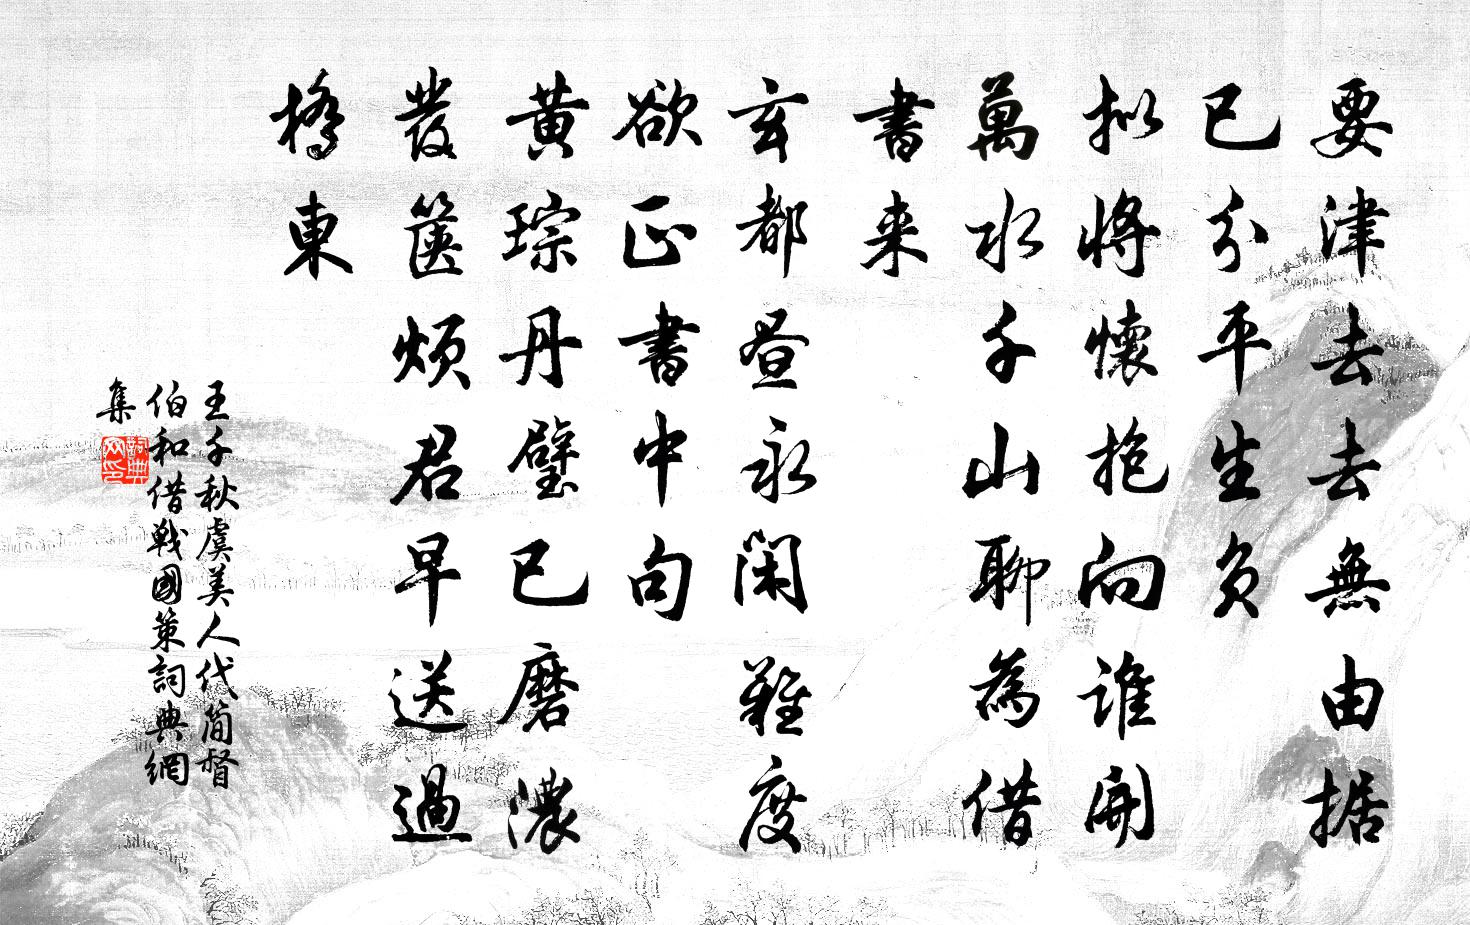 要津去去無由据
已分平生负
拟將懷抱向誰開
萬水千山聊為借
書来
玄都昼永閑難度
欲正書中句
黄琮丹璧已磨濃
發篋煩君早送過
橋東
王千秋虞美人代简督
伯和借戦國策詞典網
集
詞典
网印